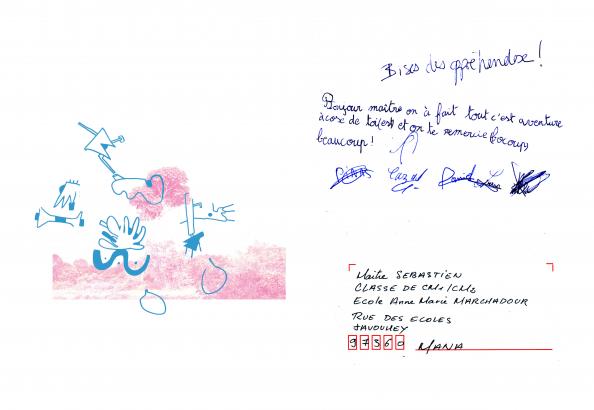 Bises des appréhendse !
Bonjour maître on à fait tout c'est aventure
àcose de toi(es) et on te remercie bocoup
beaucoup !
Maître SEBASTIEN
CLASSE DE CM1/CM2
Ecole Anne Marie MARCHADOUR
RUE DES ECOLES
JAVOUHEY
97360 MANA